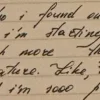 i found ou
i'm starting
h more
ature. Like,
i'm sooo p